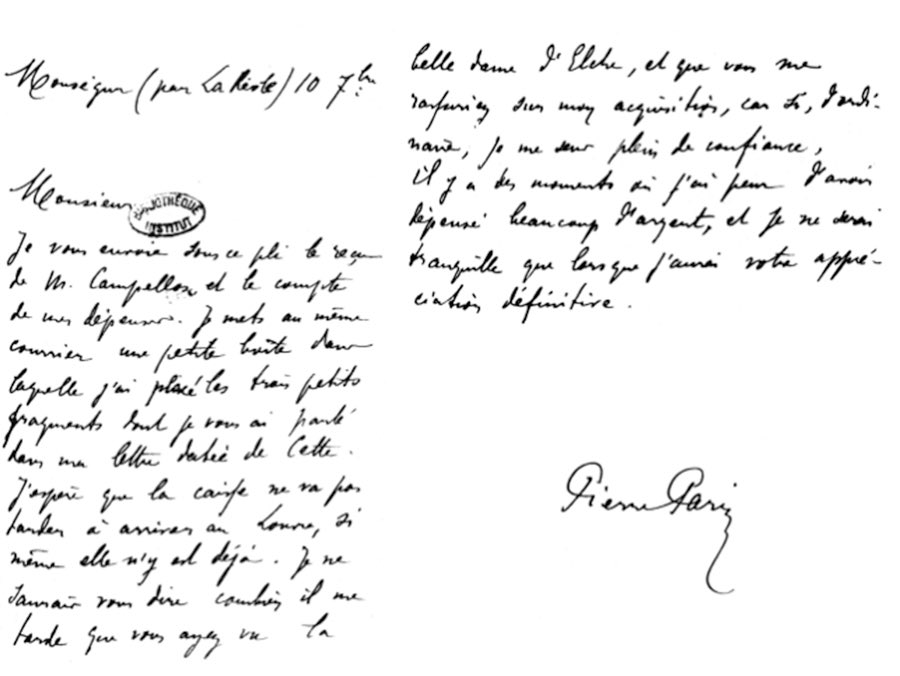 Monségur (par La Réole) 10 7bre
Monsieur
BIBLIOTHÈQUE
INSTITUT
Je vous envoie sous ce pli le reçu
de M. Campello et le compte
de mes dépenses. Je mets au même
courrier une petite boîte dans
laquelle j'ai placé les trois petits
fragments dont je vous ai parlé
dans ma lettre datée de Cette.
J'espère que la caisse ne va pas
tarder à arriver au Louvre, si
même elle n'y est déjà. Je ne
saurais vous dire combien il me
tarde que vous ayez vu la
belle dame d'Elche, et que vous me
rassuriez sur mon acquisition, car si, d'ordi-
naire, je me sens plein de confiance,
il y a des moments où j'ai peur d'avoir
dépensé beaucoup d'argent, et je ne serai
tranquille que lorsque j'aurai votre appré-
ciation définitive.
Pierre Paris